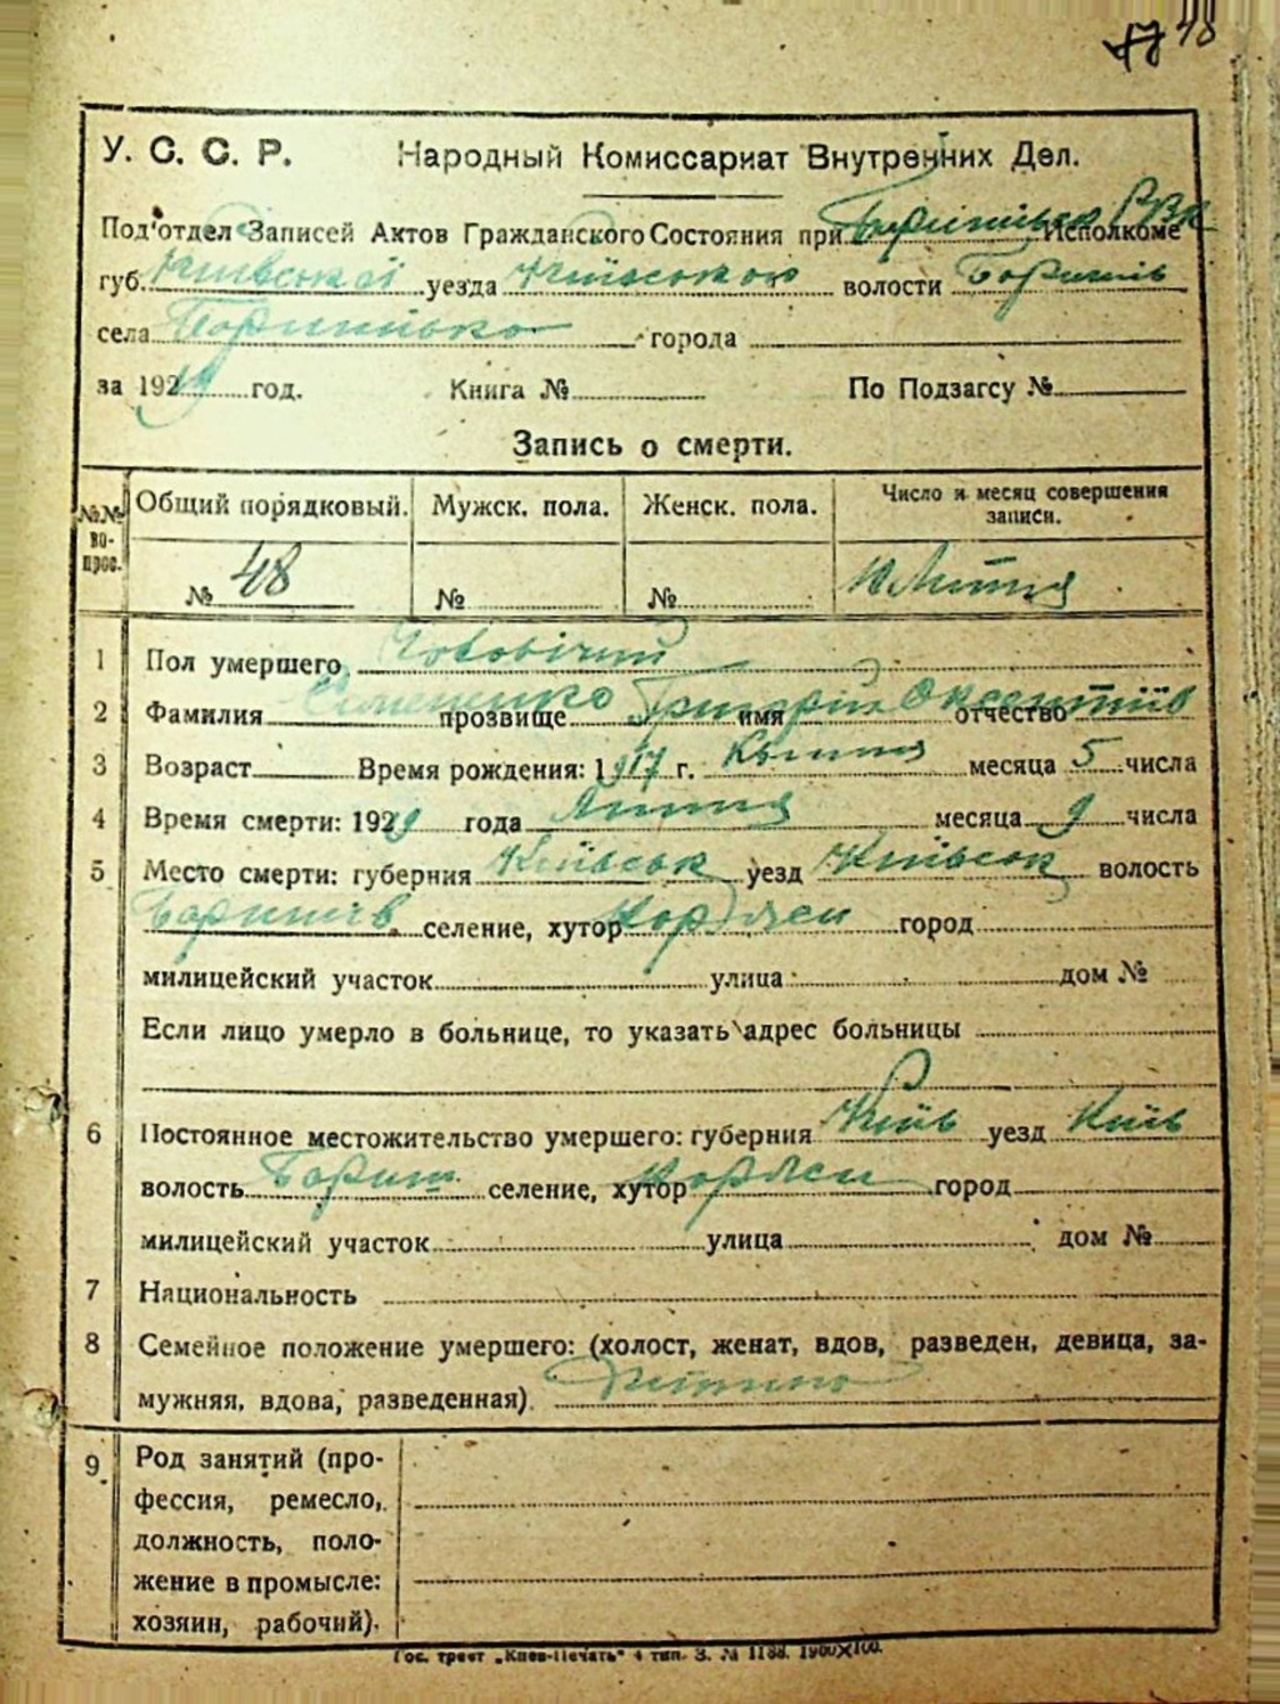 48
У. С. С. Р. Народный Комиссариат Внутренних Дел.
Под'отдел Записей Актов Гражданского Состояния при Исполкоме
губ. Київської уезда Київською волости Баришів
села города
за 1929 год. Книга № По Подзагсу №
Запись о смерти.
№№ во- прос. Общий порядковый. Мужск. пола. Женск. пола. Число и месяц совершения записи.
№ 48 № № Лютня
1 Пол умершего Чоловічий
2 Фамилия Семененко прозвище Григорій имя Оксентіїв отчество
3 Возраст Время рождения: 1917 г. Квітня месяца 5 числа
4 Время смерти: 1929 года Лютня месяца 9 числа
5 Место смерти: губерния Київськ уезд Київськ волость
Баришів селение, хутор город
милицейский участок улица дом №
Если лицо умерло в больнице, то указать адрес больницы
6 Постоянное местожительство умершего: губерния Київ уезд Київ
волость Бариш селение, хутор город
милицейский участок улица дом №
7 Национальность
8 Семейное положение умершего: (холост, женат, вдов, разведен, девица, за-
мужняя, вдова, разведенная)
9 Род занятий (про-
фессия, ремесло,
должность, поло-
жение в промысле:
хозяин, рабочий).
Гос. трест „Киев-Печать" 4 тип. З. № 1188. 1900×100.